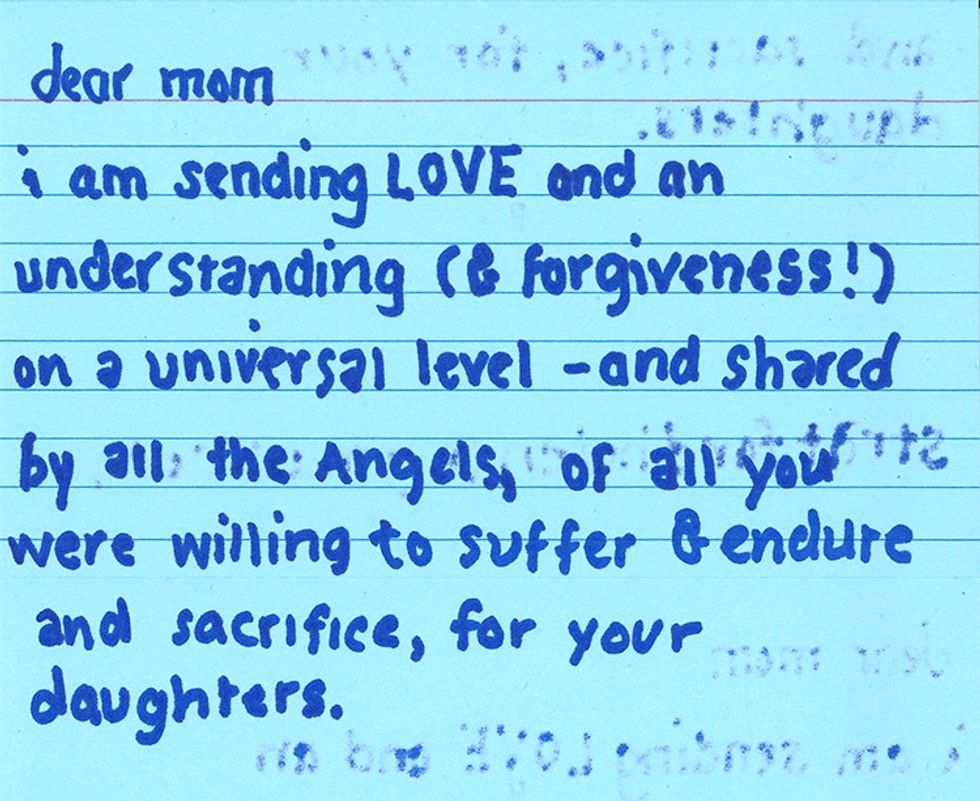 dear mom
i am sending LOVE and an
understanding (& forgiveness!)
on a universal level - and shared
by all the Angels, of all you
were willing to suffer & endure
and sacrifice, for your
daughters.